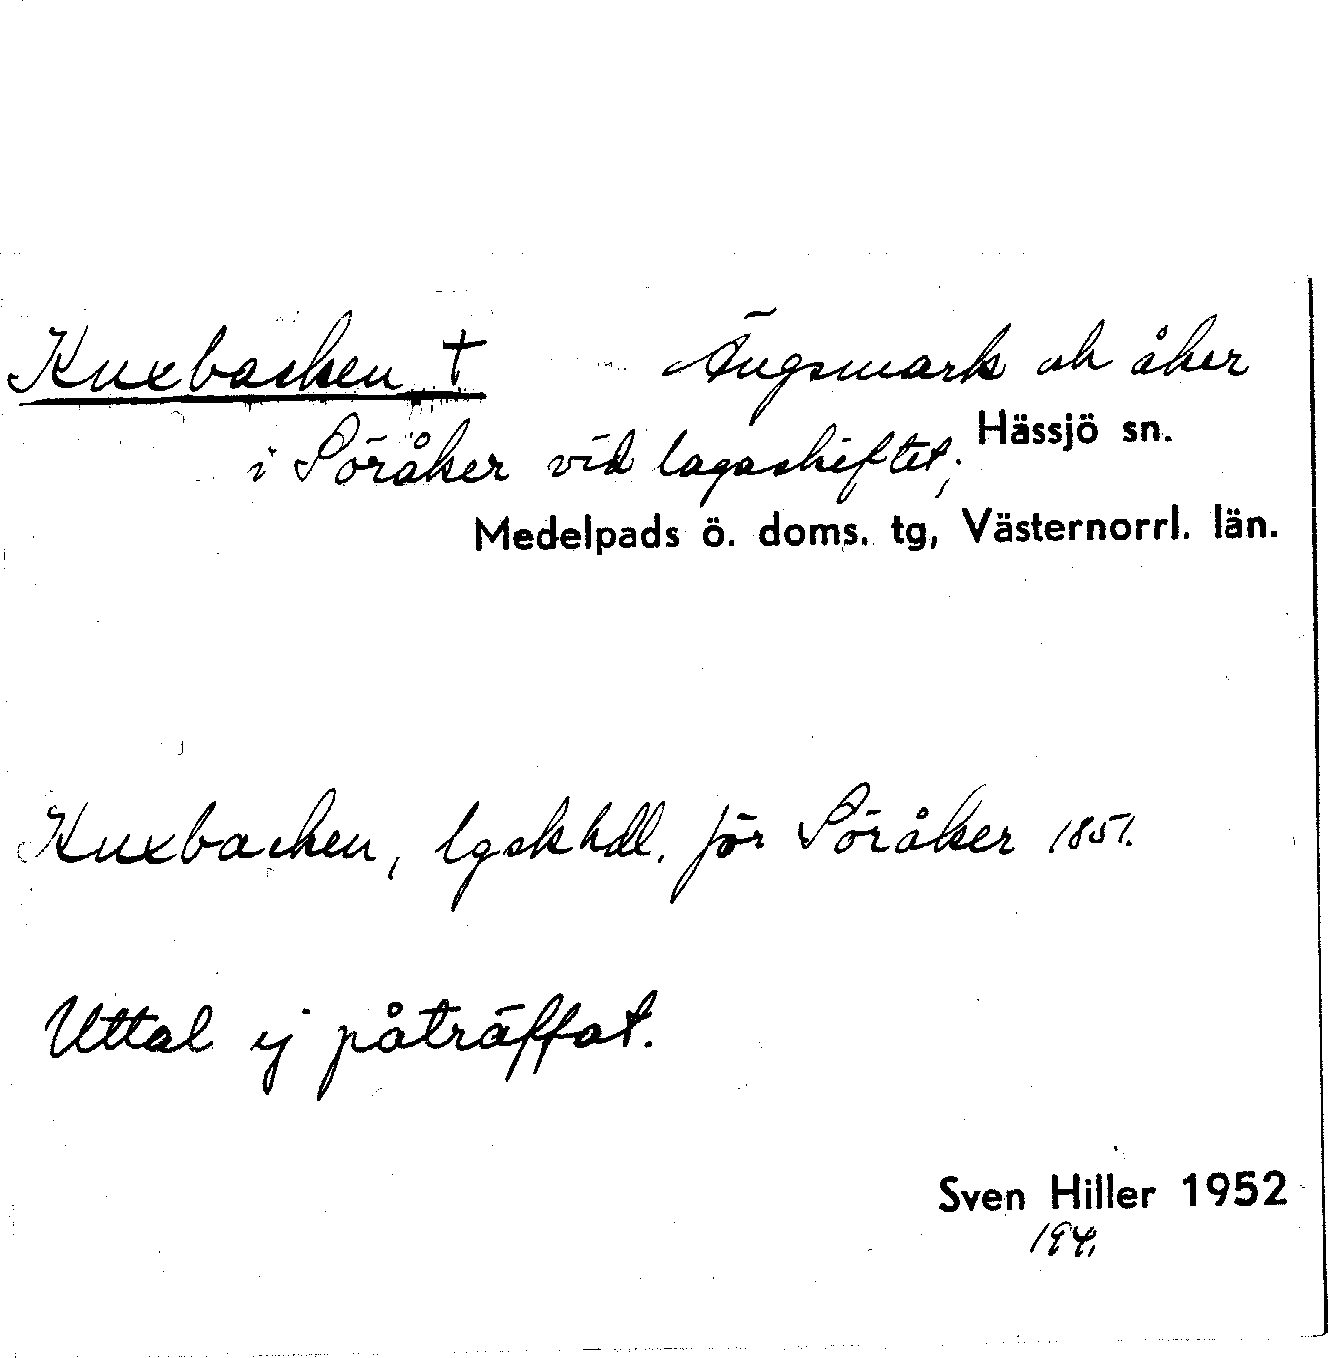 Knxbacken † Ängsmark ok åker
i Söråker vid lagaskiftet, Hässjö sn.
Medelpads ö. doms. tg, Västernorrl. län.
Knxbacken, lgskhdl. för Söråker 1851.
Uttal ej påträffat.
Sven Hiller 1952